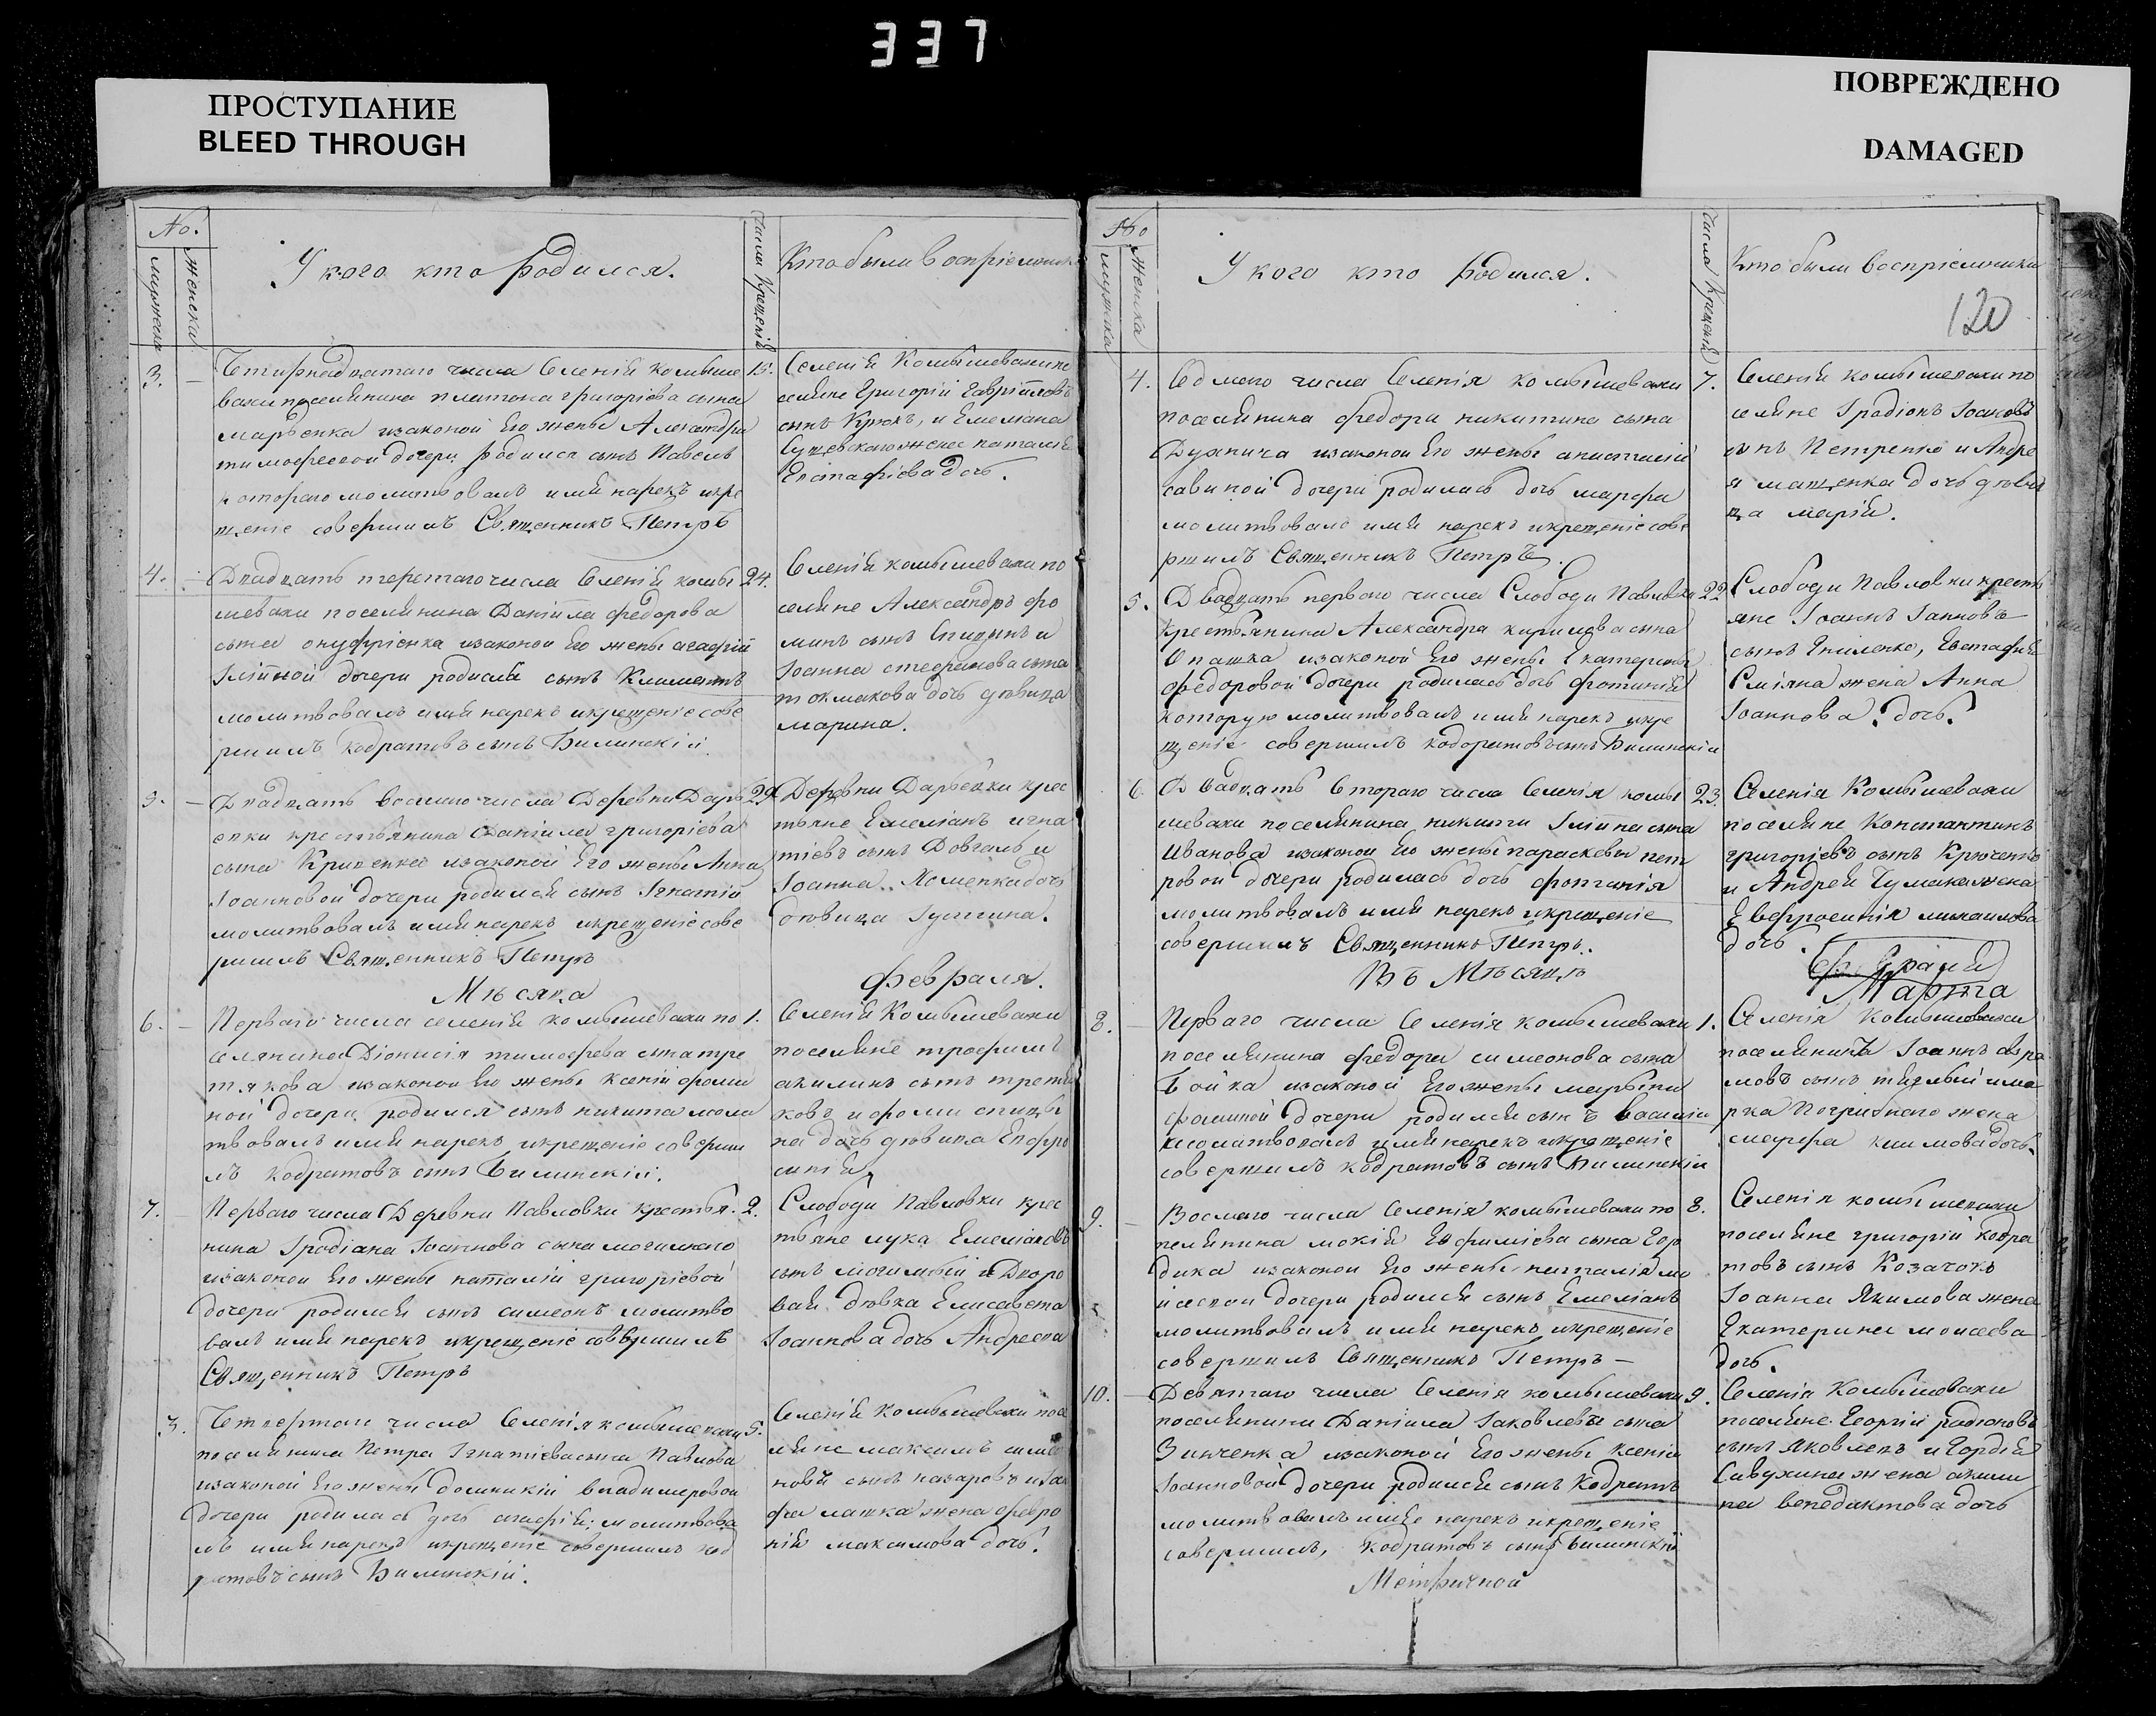 337
ПРОСТУПАНИЕ
BLEED THROUGH
ПОВРЕЖДЕНО
DAMAGED
No.
мужеска
женска
У кого кто родился.
Числа крещенія
Кто были воспріемники
3.
Четырнадцатаго числа Селенія комыше
вахи поселянина платона григоріева сына
марченка изаконой Его жены Александры
тимофеевой дочери родился сынъ Павелъ
котораго молитвовалъ имя нарекъ икре
щеніе совершилъ Священникъ Петръ
15.
Селенія Комышевахи по
селяне Григорій Гавріиловъ
сынъ Крюкъ, и Емельяна
жена наталія
Евстафіева дочь.
4.
Двадцать четвертаго числа Селенія комы
шевахи поселянина Даніила федорова
сына онуфріенка изаконой Его жены агафіи
Іліиной дочери родился сынъ Климентъ
молитвовалъ имя нарекъ икрещеніе сове
ршилъ кодратовъ сынъ Билинскій.
24.
Селенія комышевахи по
селяне Александръ фо
минъ сынъ и
Іоанна стефанова сына
токмакова дочь девица
марина.
5.
Двадцать восмаго числа Деревни Дарь
евки крестьянина Даніила григоріева
сына изаконой Его жены Анны
Іоанновой дочери родился сынъ Игнатій
молитвовалъ имя нарекъ икрещеніе сове
ршилъ Священникъ Петръ
29.
Деревни Дарьевки крес
тьяне Емеліанъ игна
тіевъ сынъ Довгаль и
Іоанна Хоменка дочь
девица Іустина.
Месяца
февраля.
6.
Перваго числа селенія комышевахи по
селянина Діонисія тимофеева сына тре
тякова изаконой Его жены ксеніи фоми
ной дочери родился сынъ никита моли
твовалъ имя нарекъ икрещеніе соверши
лъ кодратовъ сынъ Билинскій.
1.
Селенія Комышевахи
поселяне трофимъ
акилинъ сынъ третя
ковъ и фомы спицы
на дочь девица Евфро
синія
7.
Перваго числа Деревни Павловки крестья.
нина Іродіана Іоаннова сына могилнаго
изаконой Его жены наталіи григоріевой
дочери родился сынъ симеонъ молитво
валъ имя нарекъ икрещеніе совершилъ
Священникъ Петръ
2.
Слободы Павловки крес
тьяне лука Емеліановъ
сынъ могилный и Дворо
вая девка Елисавета
Іоаннова дочь Андреева
3.
Четвертаго числа Селенія комышевахи
поселянина Петра Игнатіева сына Павлова
изаконой Его жены домникіи владимеровой
дочери родилась дочь агафія: молитвова
лъ имя нарекъ икрещеніе совершилъ код
ратовъ сынъ Билинскій.
5.
Селенія Комышевахи посе
ляне максимъ симео
новъ сынъ назаровъ
жена февро
нія максимова дочь.
No
мужска
женска
У кого кто родился.
Числа крещенія
Кто были воспріемники
120
4.
Седмого числа Селенія комышевахи
поселянина федора никитина сына
изаконой Его жены анастасіи
савиной дочери родилась дочь марфа
молитвовалъ имя нарекъ икрещеніе сове
ршилъ Священникъ Петръ.
7.
Селенія комышевахи по
селяне Іродіонъ Іоановъ
сынъ Петренко и Андре
я мащенка дочь деви
ца марія.
5.
Двадцать перваго числа Слободы Павловки
Крестьянина Александра кирилова сына
Опашка изаконой Его жены Екатерины
федоровой дочери родилась дочь фотинія
которую молитвовалъ имя нарекъ икре
щеніе совершилъ кодоратовъ сынъ Билинскій
22
Слободы Павловки кресть
яне Іоаннъ Іанновъ
сынъ Евстафія
жена Анна
Іоаннова дочь.
6.
Двадцать втораго числа Селенія комы
шевахи поселянина никиты Іліина сына
Иванова изаконой Его жены параскевы пет
ровой дочери родилась дочь фотинія
молитвовалъ имя нарекъ икрещеніе
совершилъ Священникъ Петръ.
23.
Селенія Комышевахи
поселяне Константинъ
григоріевъ сынъ Крюченко
и Андрея Чумака жена
Евфросинія михаилова
дочь.
Въ Месяце
Марта
8.
Перваго числа Селенія комышевахи
поселянина федора симеонова сына
Бойка изаконой Его жены марины
фоминой дочери родился сынъ василій
молитвовалъ имя нарекъ икрещеніе
совершилъ кодратовъ сынъ Билинскій
1.
Селенія Комышевахи
поселянинъ Іоаннъ авра
мовъ сынъ тяглый има
рка Погрибнаго жена
марфа климова дочь.
9.
Восмаго числа Селенія комышевахи по
селянина мокія Ефиміева сына Гор
дика изаконой Его жены наталіи мо
исеевой дочери родился сынъ Емеліанъ
молитвовалъ имя нарекъ икрещеніе
совершилъ Священникъ Петръ
8.
Селенія комышевахи
поселяне григорій кодра
товъ сынъ Козачокъ
Іоанна Якимова жена
Екатерина моисеева
дочь.
10.
Девятаго числа Селенія комышевахи
поселянина Даніила Іаковлева сына
Зинченка изаконой Его жены Ксеніи
Іоанновой дочери родился сынъ Кодратъ
молитвовалъ имя нарекъ икрещеніе
совершилъ, кодратовъ сынъ Билинскій
9.
Селенія Комышевахи
поселяне Георгій радіоновъ
сынъ Яковлевъ и Гордія
Савухина жена акили
на венедиктова дочь
Метричной